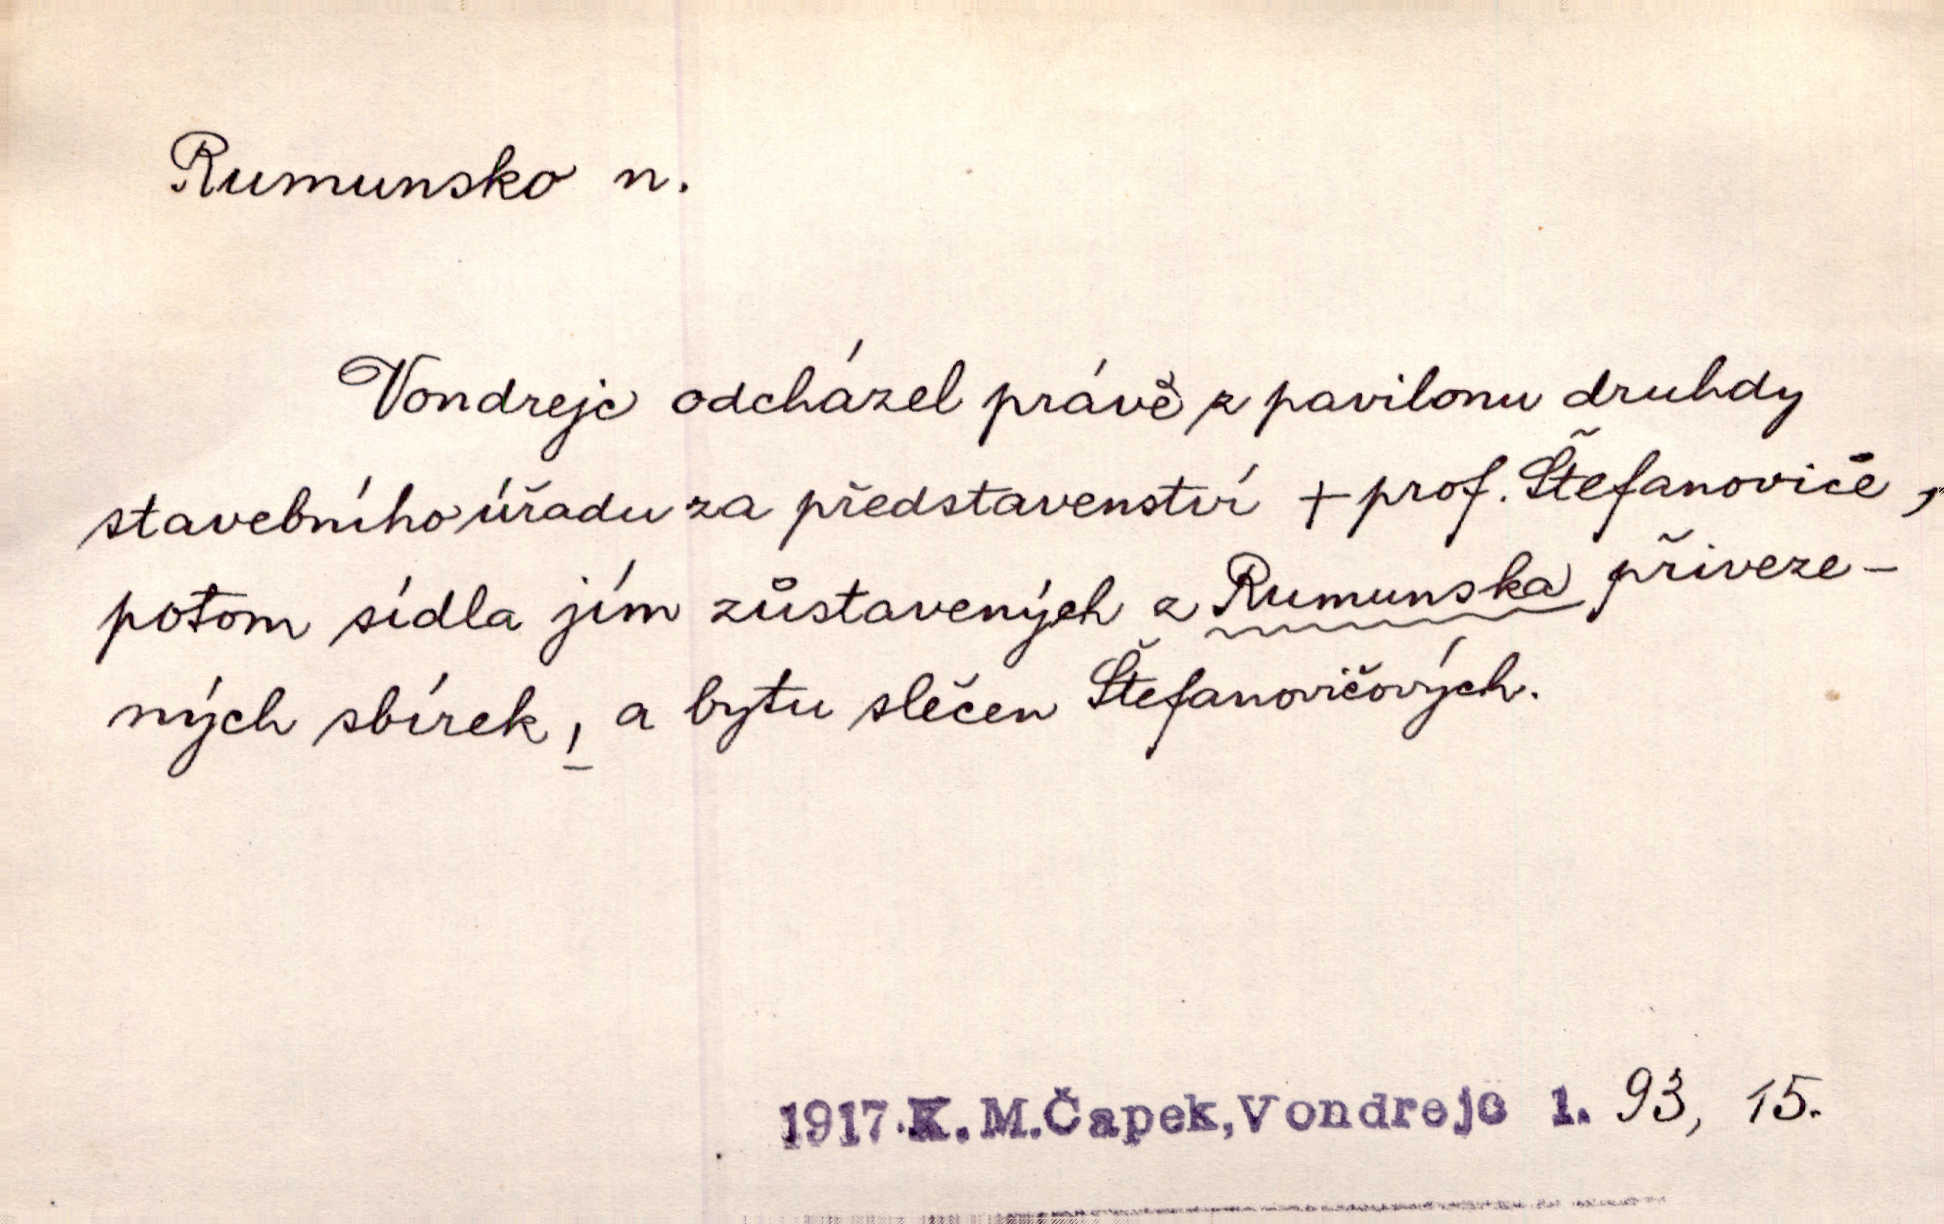 Rumunsko n.
Vondrejc odcházel právě z pavilonu druhdy
stavebního úřadu za představenství + prof. Štefanoviče,
potom sídla jím zůstavených z Rumunska přiveze-
ných sbírek, a bytu slečen Štefanovičových.
1917.K.M.Čapek,Vondrejc 1. 93, 15.